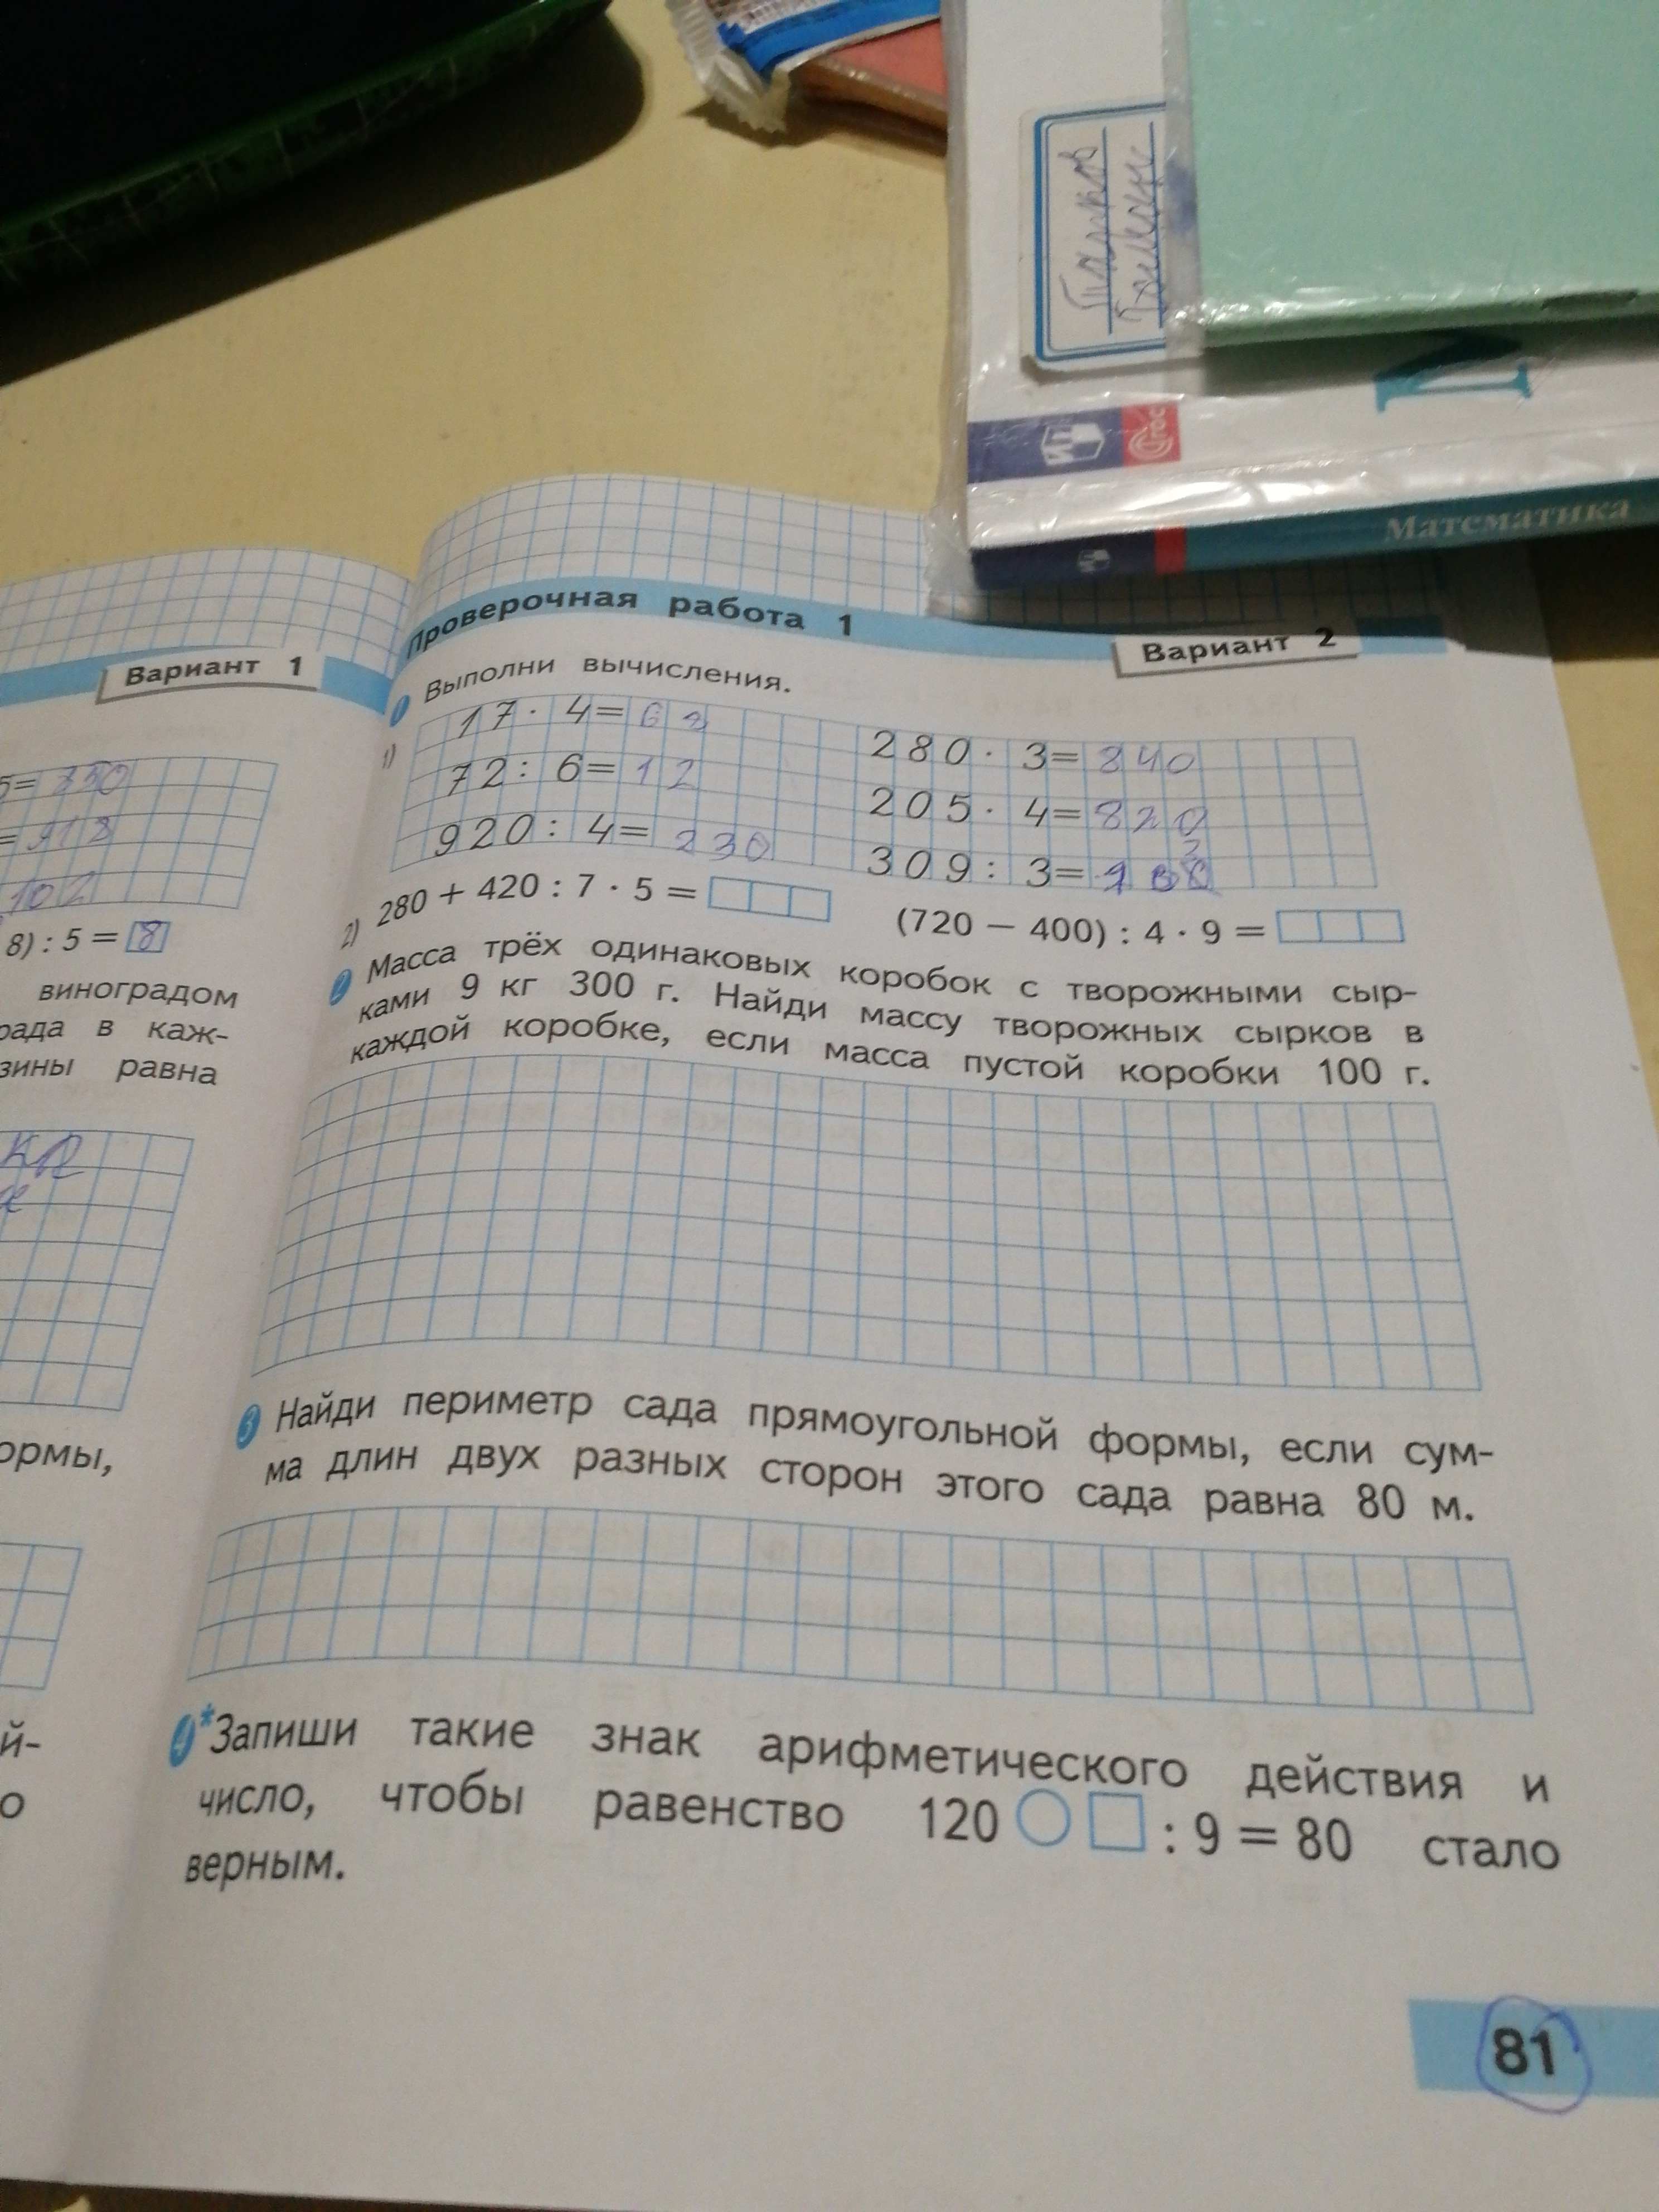 Математика
Проверочная работа 1
Вариант 2
Вариант 1
Выполни вычисления.
1)
17 · 4 = 68
280 · 3 = 840
72 : 6 = 12
205 · 4 = 820
920 : 4 = 230
309 : 3 =
2) 280 + 420 : 7 · 5 =
(720 − 400) : 4 · 9 =
2 Масса трёх одинаковых коробок с творожными сыр-
ками 9 кг 300 г. Найди массу творожных сырков в
каждой коробке, если масса пустой коробки 100 г.
3 Найди периметр сада прямоугольной формы, если сум-
ма длин двух разных сторон этого сада равна 80 м.
4* Запиши такие знак арифметического действия и
число, чтобы равенство 120 ○ □ : 9 = 80 стало
верным.
81
102
8) : 5 = 8
виноградом
рада в каж-
зины равна
ормы,
й-
о